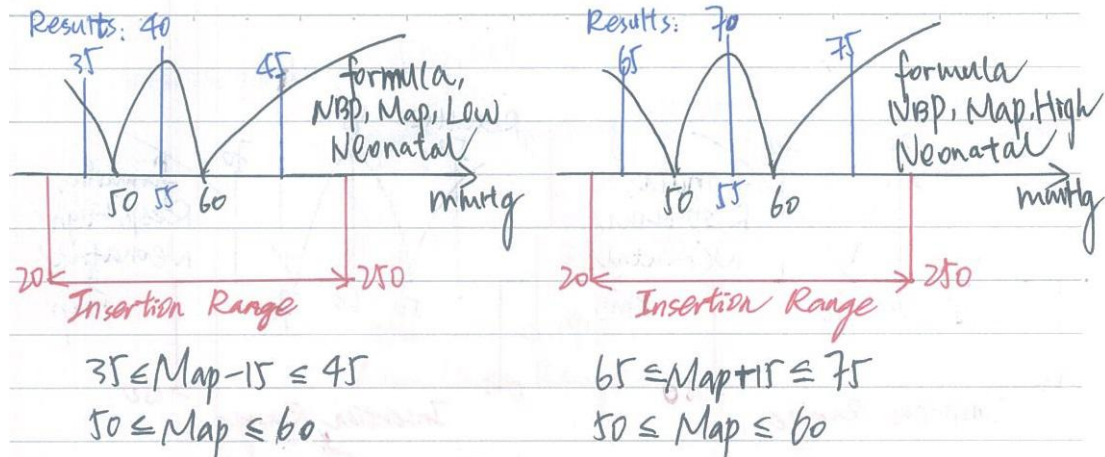 Results: 40
35
45
formula,
NBP, Map, Low
Neonatal
50 55 60
mmHg
20
250
Insertion Range
35 ≤ Map-15 ≤ 45
50 ≤ Map ≤ 60
Results: 70
65
75
formula
NBP, Map, High
Neonatal
50 55 60
mmHg
20
250
Insertion Range
65 ≤ Map+15 ≤ 75
50 ≤ Map ≤ 60